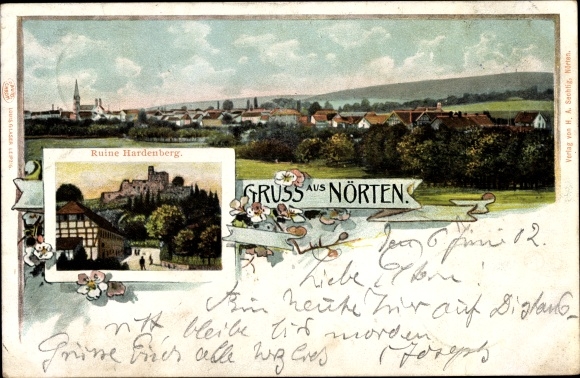 Ruine Hardenberg.
GRUSS AUS NÖRTEN.
Verlag von H. A. Sechtig, Nörten.
6 Juni 02.
Liebe Eltern!
Bin heute hier auf Distanz-
ritt bleibe bis morgen
Grüsse Euch alle herzlich
Joseph